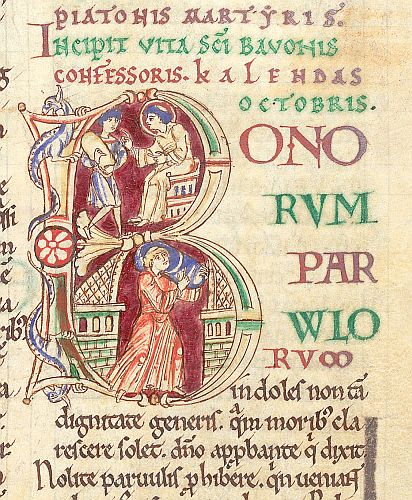 PIATONIS MARTYRIS.
INCIPIT VITA SCI BAVONIS
CONFESSORIS. KALENDAS
OCTOBRIS.
BONO
RVM
PAR
WLO
RVM
indoles non tā
dignitate generis. qm morib; cla
rescere solet. dño appbante q dixit
Nolite paruulis phibere. qn ueniant